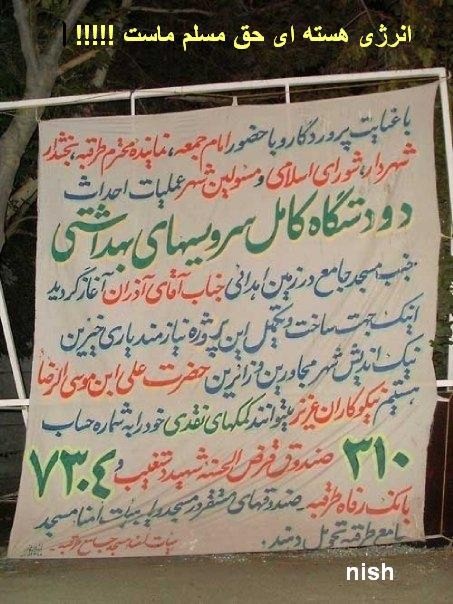 انرژی هسته ای حق مسلم ماست !!!!!
با عنایت پروردگار و با حضور امام جمعه، نماینده محترم طرقبه، بخشدار
شهردار، شورای اسلامی و مسئولین شهر عملیات احداث
دو دستگاه کامل سرویسهای بهداشتی
جنب مسجد جامع در زمین اهدائی جناب آقای آذران آغاز گردید
اینک جهت ساخت و تکمیل این پروژه نیازمند یاری خیرین
نیک اندیش شهر مجاورین و زائرین حضرت علی ابن موسی الرضا
هستیم نیکوکاران عزیز میتوانند کمکهای نقدی خود را به شماره حساب
۳۱۰ صندوق قرض الحسنه شهید و ۷۳۰۴
بانک رفاه طرقبه صندوقهای مستقر در مسجد و یا هیئت امنا مسجد
جامع طرقبه تحویل دهند.
هیات امنا مسجد جامع طرقبه
nish